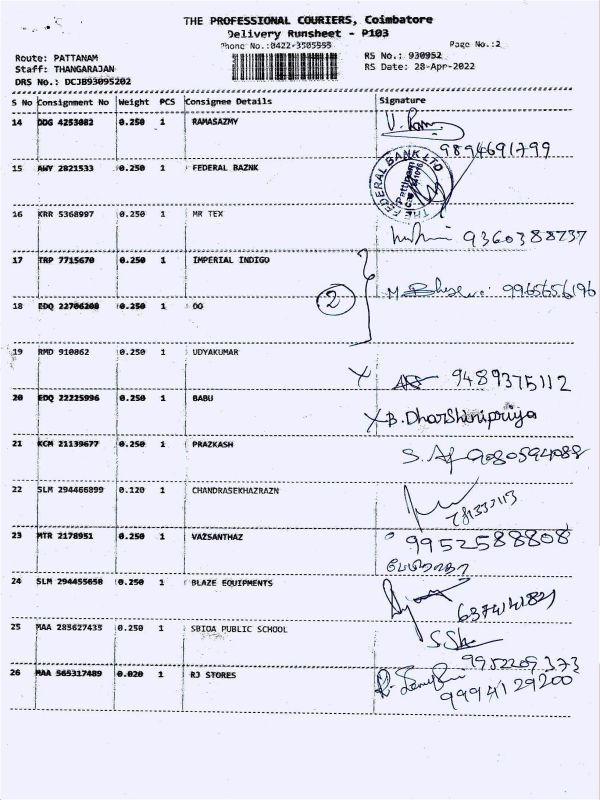 THE PROFESSIONAL COURIERS, Coimbatore
Delivery Runsheet - P103
Phone No.:0422-3505555 Page No.:2
Route: PATTANAM RS No.: 930952
Staff: THANGARAJAN RS Date: 28-Apr-2022
DRS No.: DCJB93095202
S No Consignment No Weight PCS Consignee Details Signature
14 DDG 4253082 0.250 1 RAMASAZMY V. Ram
9894691799
15 AWY 2821533 0.250 1 FEDERAL BAZNK
THE FEDERAL BANK LTD
Pattanam
16 KRR 5368997 0.250 1 MR TEX
9360388737
17 TRP 7715670 0.250 1 IMPERIAL INDIGO
2 9965656196
18 EDQ 22706208 0.250 1 OO
19 RMD 910862 0.250 1 UDYAKUMAR
X 9489375112
20 EDQ 22225996 0.250 1 BABU
X B. Dharshinipriya
21 KCM 21139677 0.250 1 PRAZKASH
9080594088
22 SLM 294466899 0.120 1 CHANDRASEKHAZRAZN
23 MTR 2178951 0.250 1 VAZSANTHAZ
9952588808
24 SLM 294455658 0.250 1 BLAZE EQUIPMENTS
25 MAA 285627435 0.250 1 SBIOA PUBLIC SCHOOL
9952209373
26 MAA 565317489 0.020 1 RJ STORES
9994129200